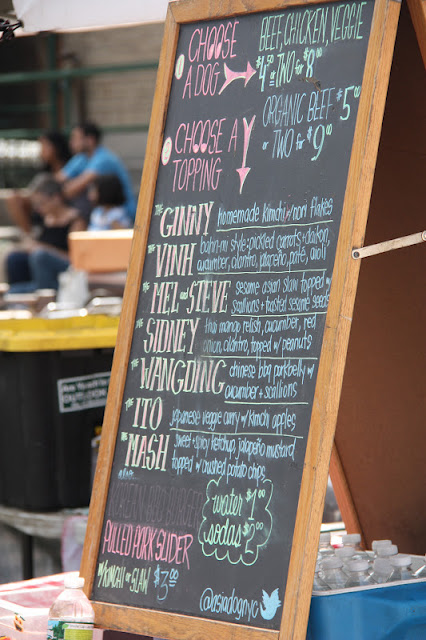 ① CHOOSE
A DOG
BEEF, CHICKEN, VEGGIE
$4.50 or TWO for $8.00
ORGANIC BEEF $5.00
or TWO for $9
CHOOSE A
TOPPING
the GINNY homemade kimchi w/ nori flakes
the VINH banh-mi style: pickled carrots + daikon,
cucumber, cilantro, jalapeño, paté, aioli
the MEL and STEVE sesame asian slaw topped w/
scallions + toasted sesame seeds
the SIDNEY thai mango relish, cucumber, red
onion, cilantro, topped w/ peanuts
the WANGDING chinese bbq porkbelly w/
cucumber + scallions
the ITO japanese veggie curry w/ kimchi apples
the MASH sweet + spicy ketchup, jalapeño mustard,
topped w/ crushed potato chips
PULLED PORK SLIDER
w/ KIMCHI or SLAW $3.00
water $1.00
sodas $2.00
@asiadognyc